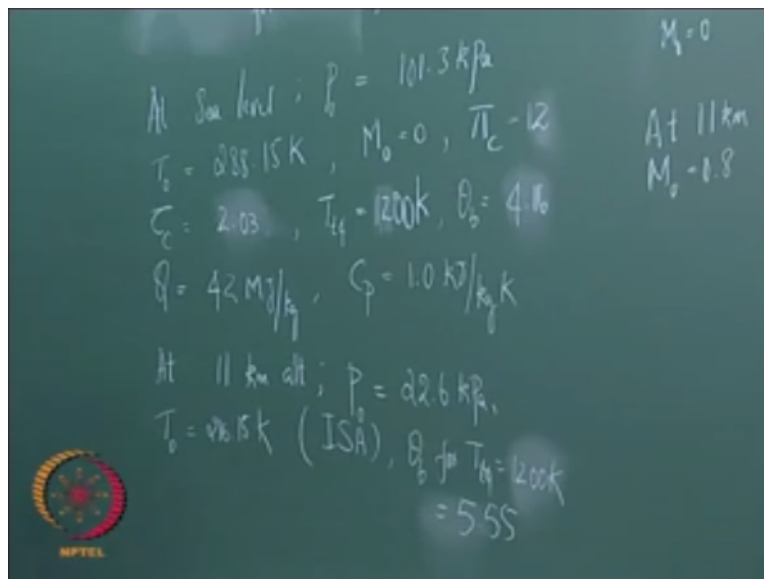 for
At Sea level ; P₀ = 101.3 kPa
T₀ = 288.15 K , M₀ = 0 , π_c = 12
τ_c = 2.03 , T_t4 = 1200K , θ_b = 4.16
Q = 42 MJ/kg , C_p = 1.0 kJ/kg K
At 11 km alt ; P₀ = 22.6 kPa,
T₀ = 216.15 K (ISA), θ_b for T_t4 = 1200K
= 5.55
M₀ = 0
At 11 km
M₀ = 0.8
NPTEL